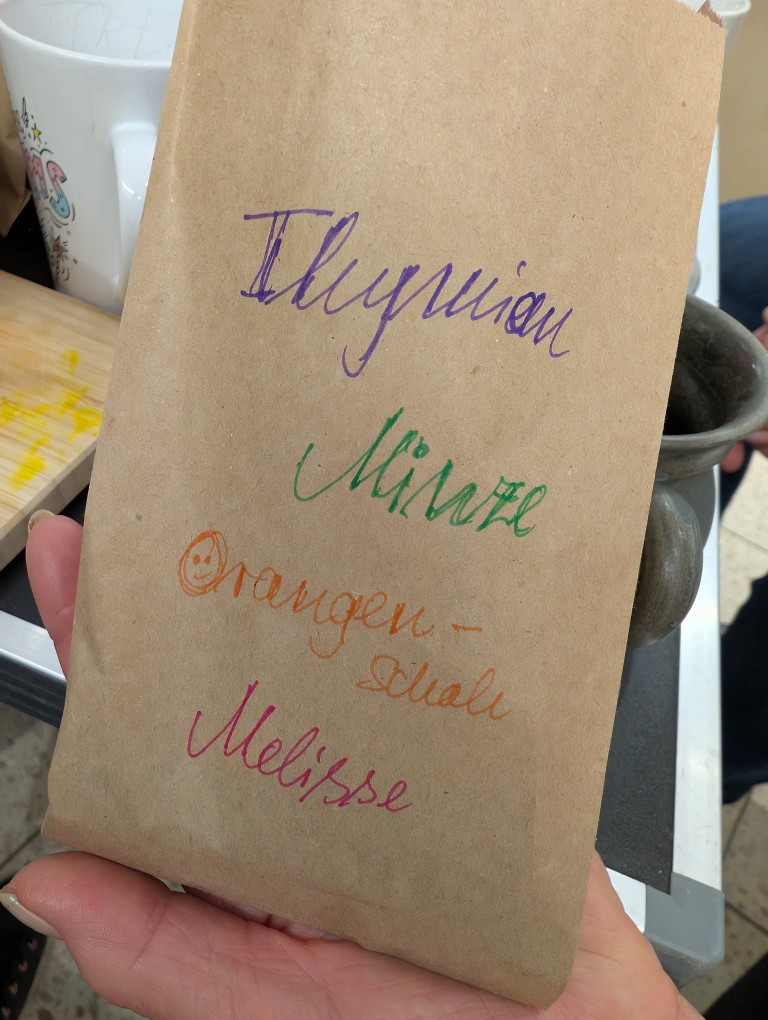 Thymian
Minze
Orangen-
schale
Melisse